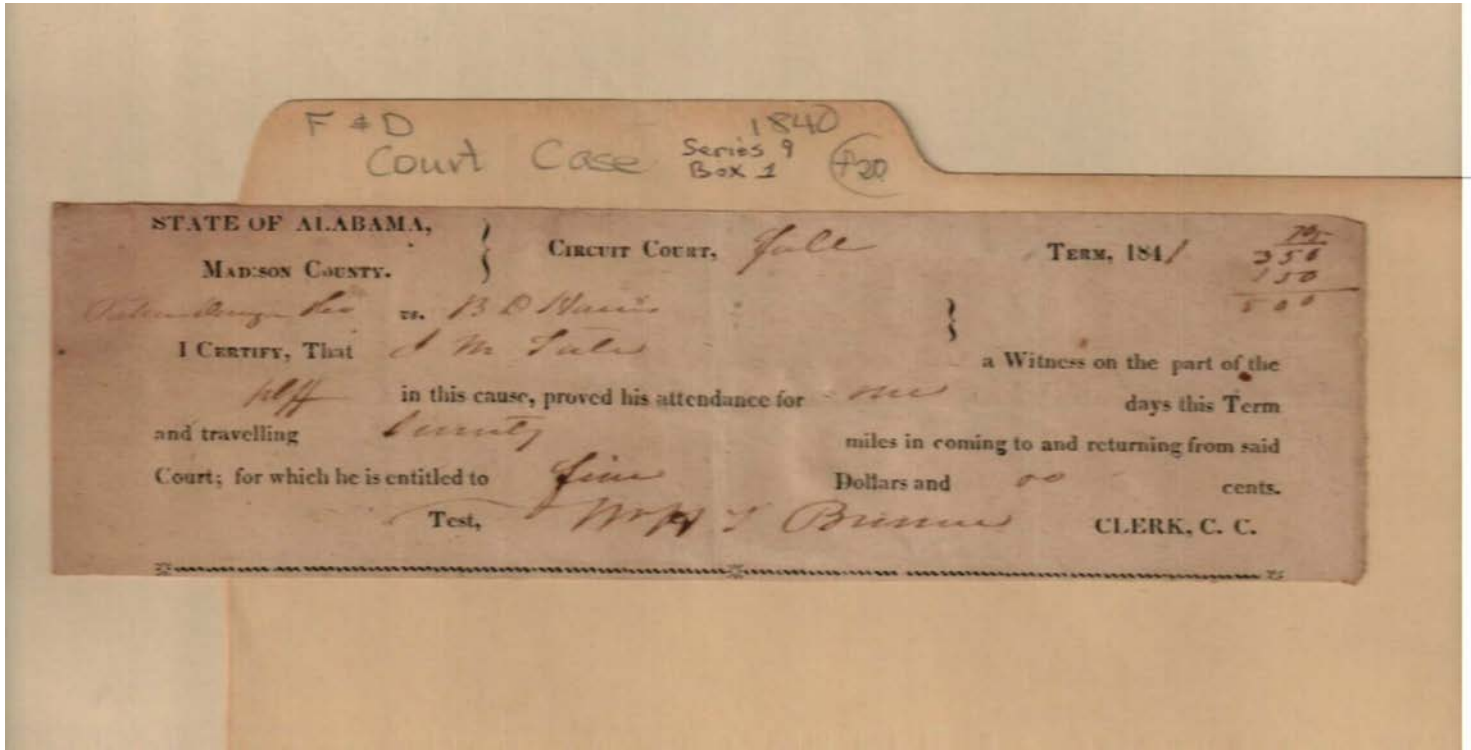 F & D 1840
Court Case Series 9
Box 1 +20
STATE OF ALABAMA,
MADISON COUNTY.
CIRCUIT COURT, fall TERM, 1841
350
150
500
vs. B D Harris
I CERTIFY, That J M a Witness on the part of the
plff in this cause, proved his attendance for one days this Term
and travelling miles in coming to and returning from said
Court; for which he is entitled to five Dollars and 00 cents.
Test, CLERK, C. C.